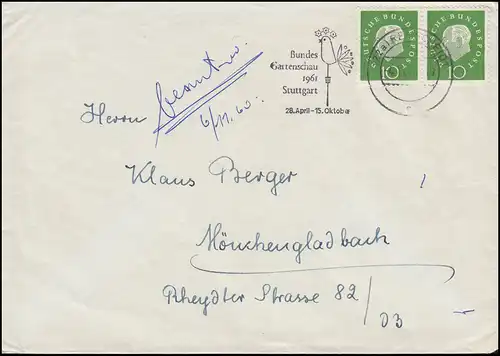 DEUTSCHE BUNDESPOST DEUTSCHE BUNDESPOST
10 10
Bundes
Gartenschau
1961
Stuttgart
28. April - 15. Oktober
6/11. 60.
Herrn
Klaus Berger
Mönchengladbach
Rheydter Strasse 82/